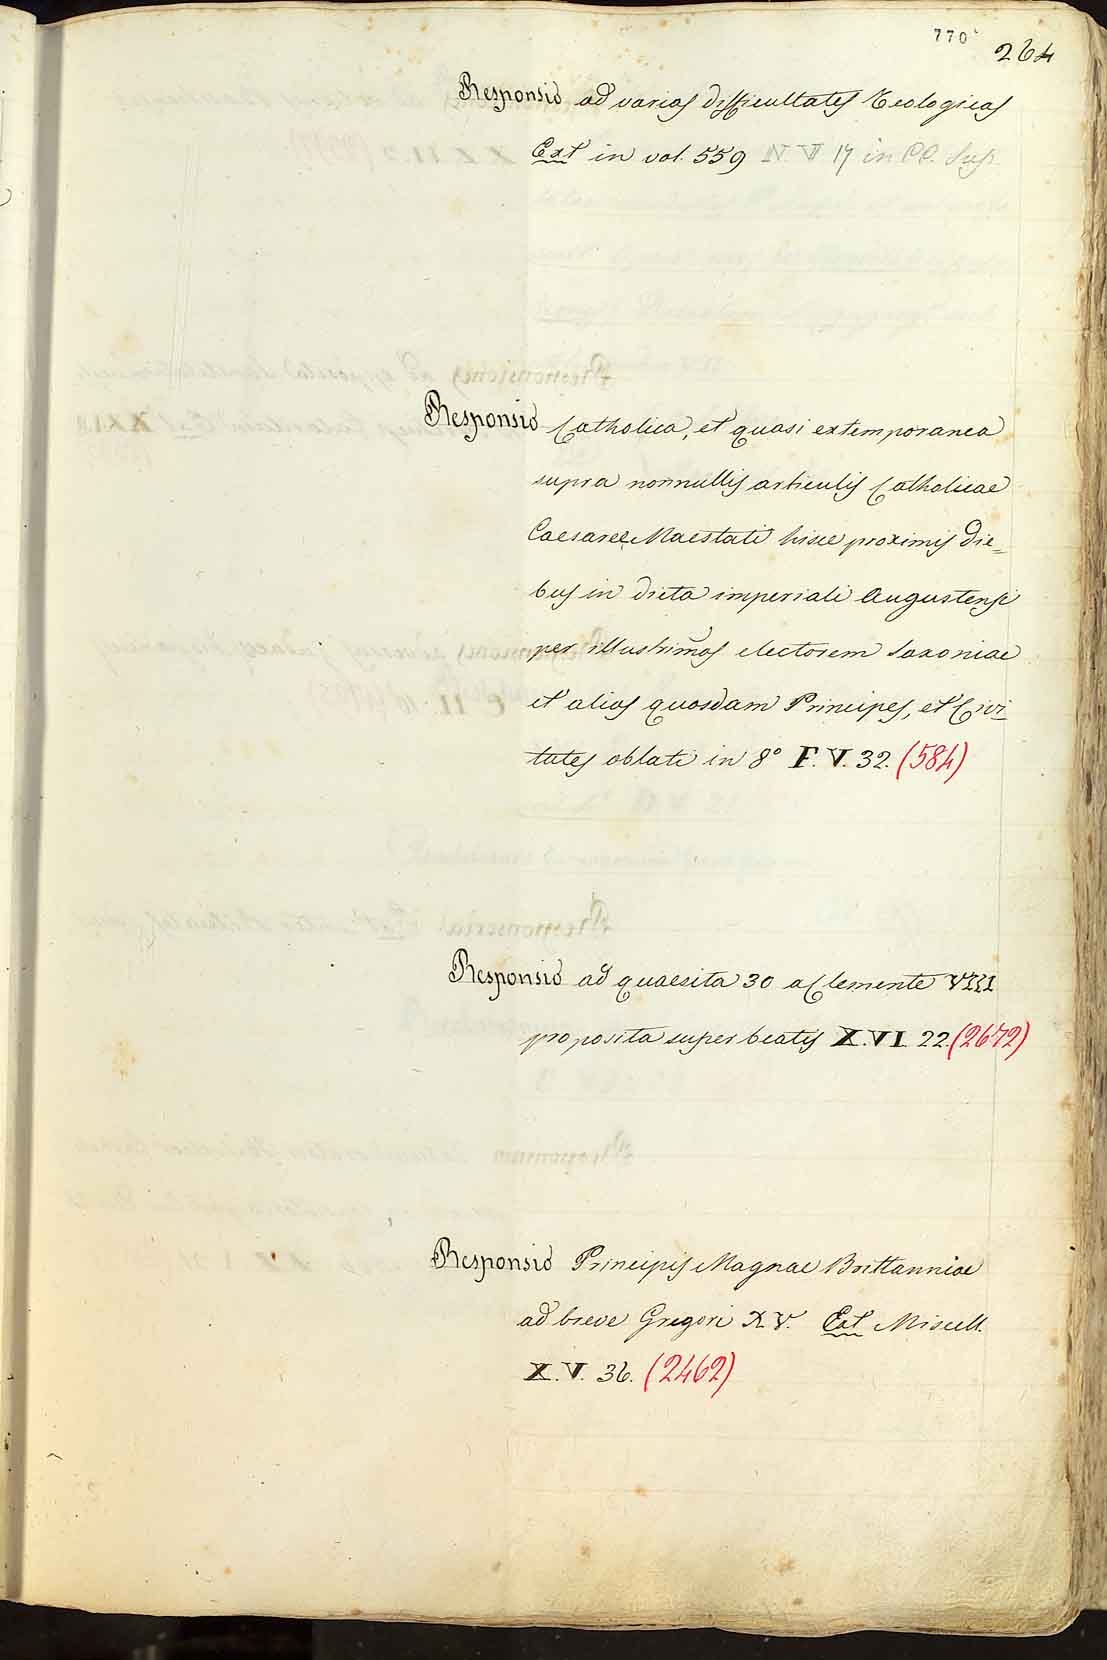 770
264
Responsio ad varias difficultates Teologicas
Ext in vol. 559 N V 17 in CC. Sup.
Responsio Catholica, et quasi extemporanea
supra nonnullis articulis Catholicae
Caesaree Maestati hisce proximis die=
bus in dieta imperiali Augustensi
per illustrimos electorem Saxoniae
et alios quosdam Principes, et Civi
tates oblati in 8° F. V. 32. (584)
Responsio ad quaesita 30 a Clemente VIII
proposita super beatis X. VI. 22. (2672)
Responsio Principis Magnae Brittanniae
ad breve Gregori XV. Ext Miscell.
X. V. 36. (2462)